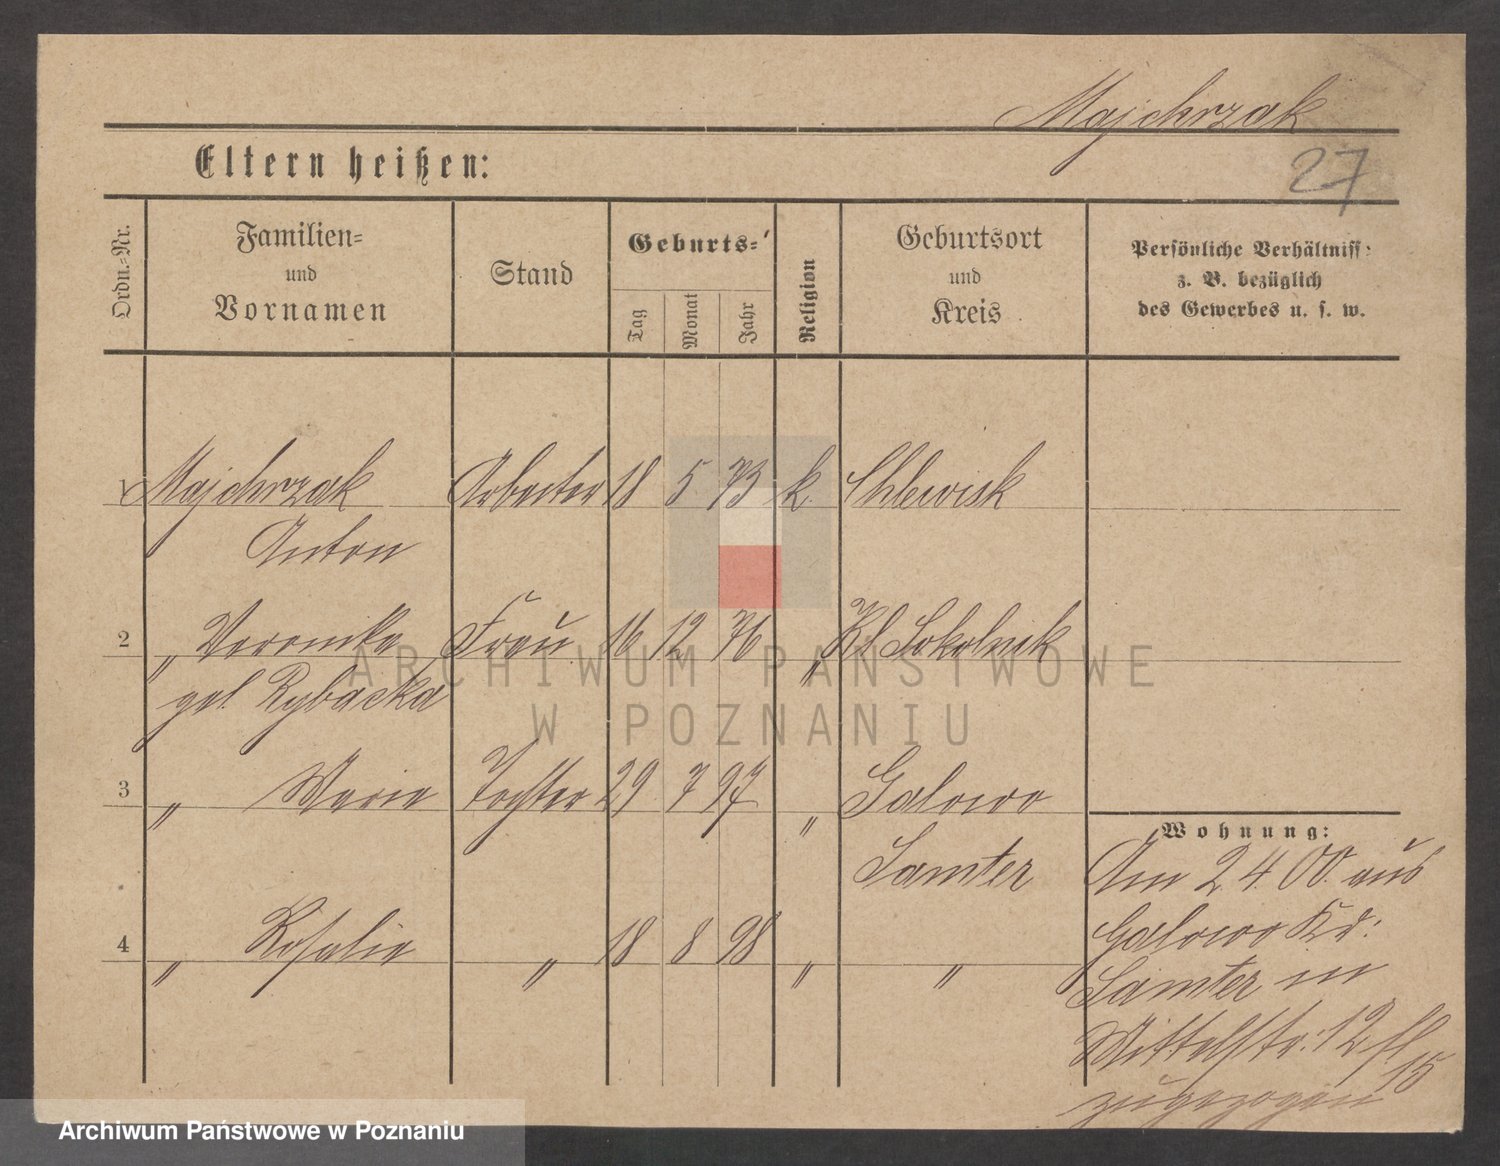 Majchrzak
27
Eltern heißen:
Ordn.-Nr.
Familien-
und
Vornamen
Stand
Geburts-
Tag
Monat
Jahr
Religion
Geburtsort
und
Kreis
Persönliche Verhältniss
z. B. bezüglich
des Gewerbes u. s. w.
1 Majchrzak Arbeiter 18 5 73 k. Chlewisk
Anton
2 " Veronika Frau 16 12 76 " Kl Sokolnik
geb. Rybacka
3 " Marie Tochter 29 7 97 " Galowo
Samter
4 " Rosalie " 18 8 98 " "
Wohnung:
Am 2.4.00. aus
Galowo Kr:
Samter in
Mittelstr: 12
15
zugezogen
ARCHIWUM PAŃSTWOWE
W POZNANIU
Archiwum Państwowe w Poznaniu